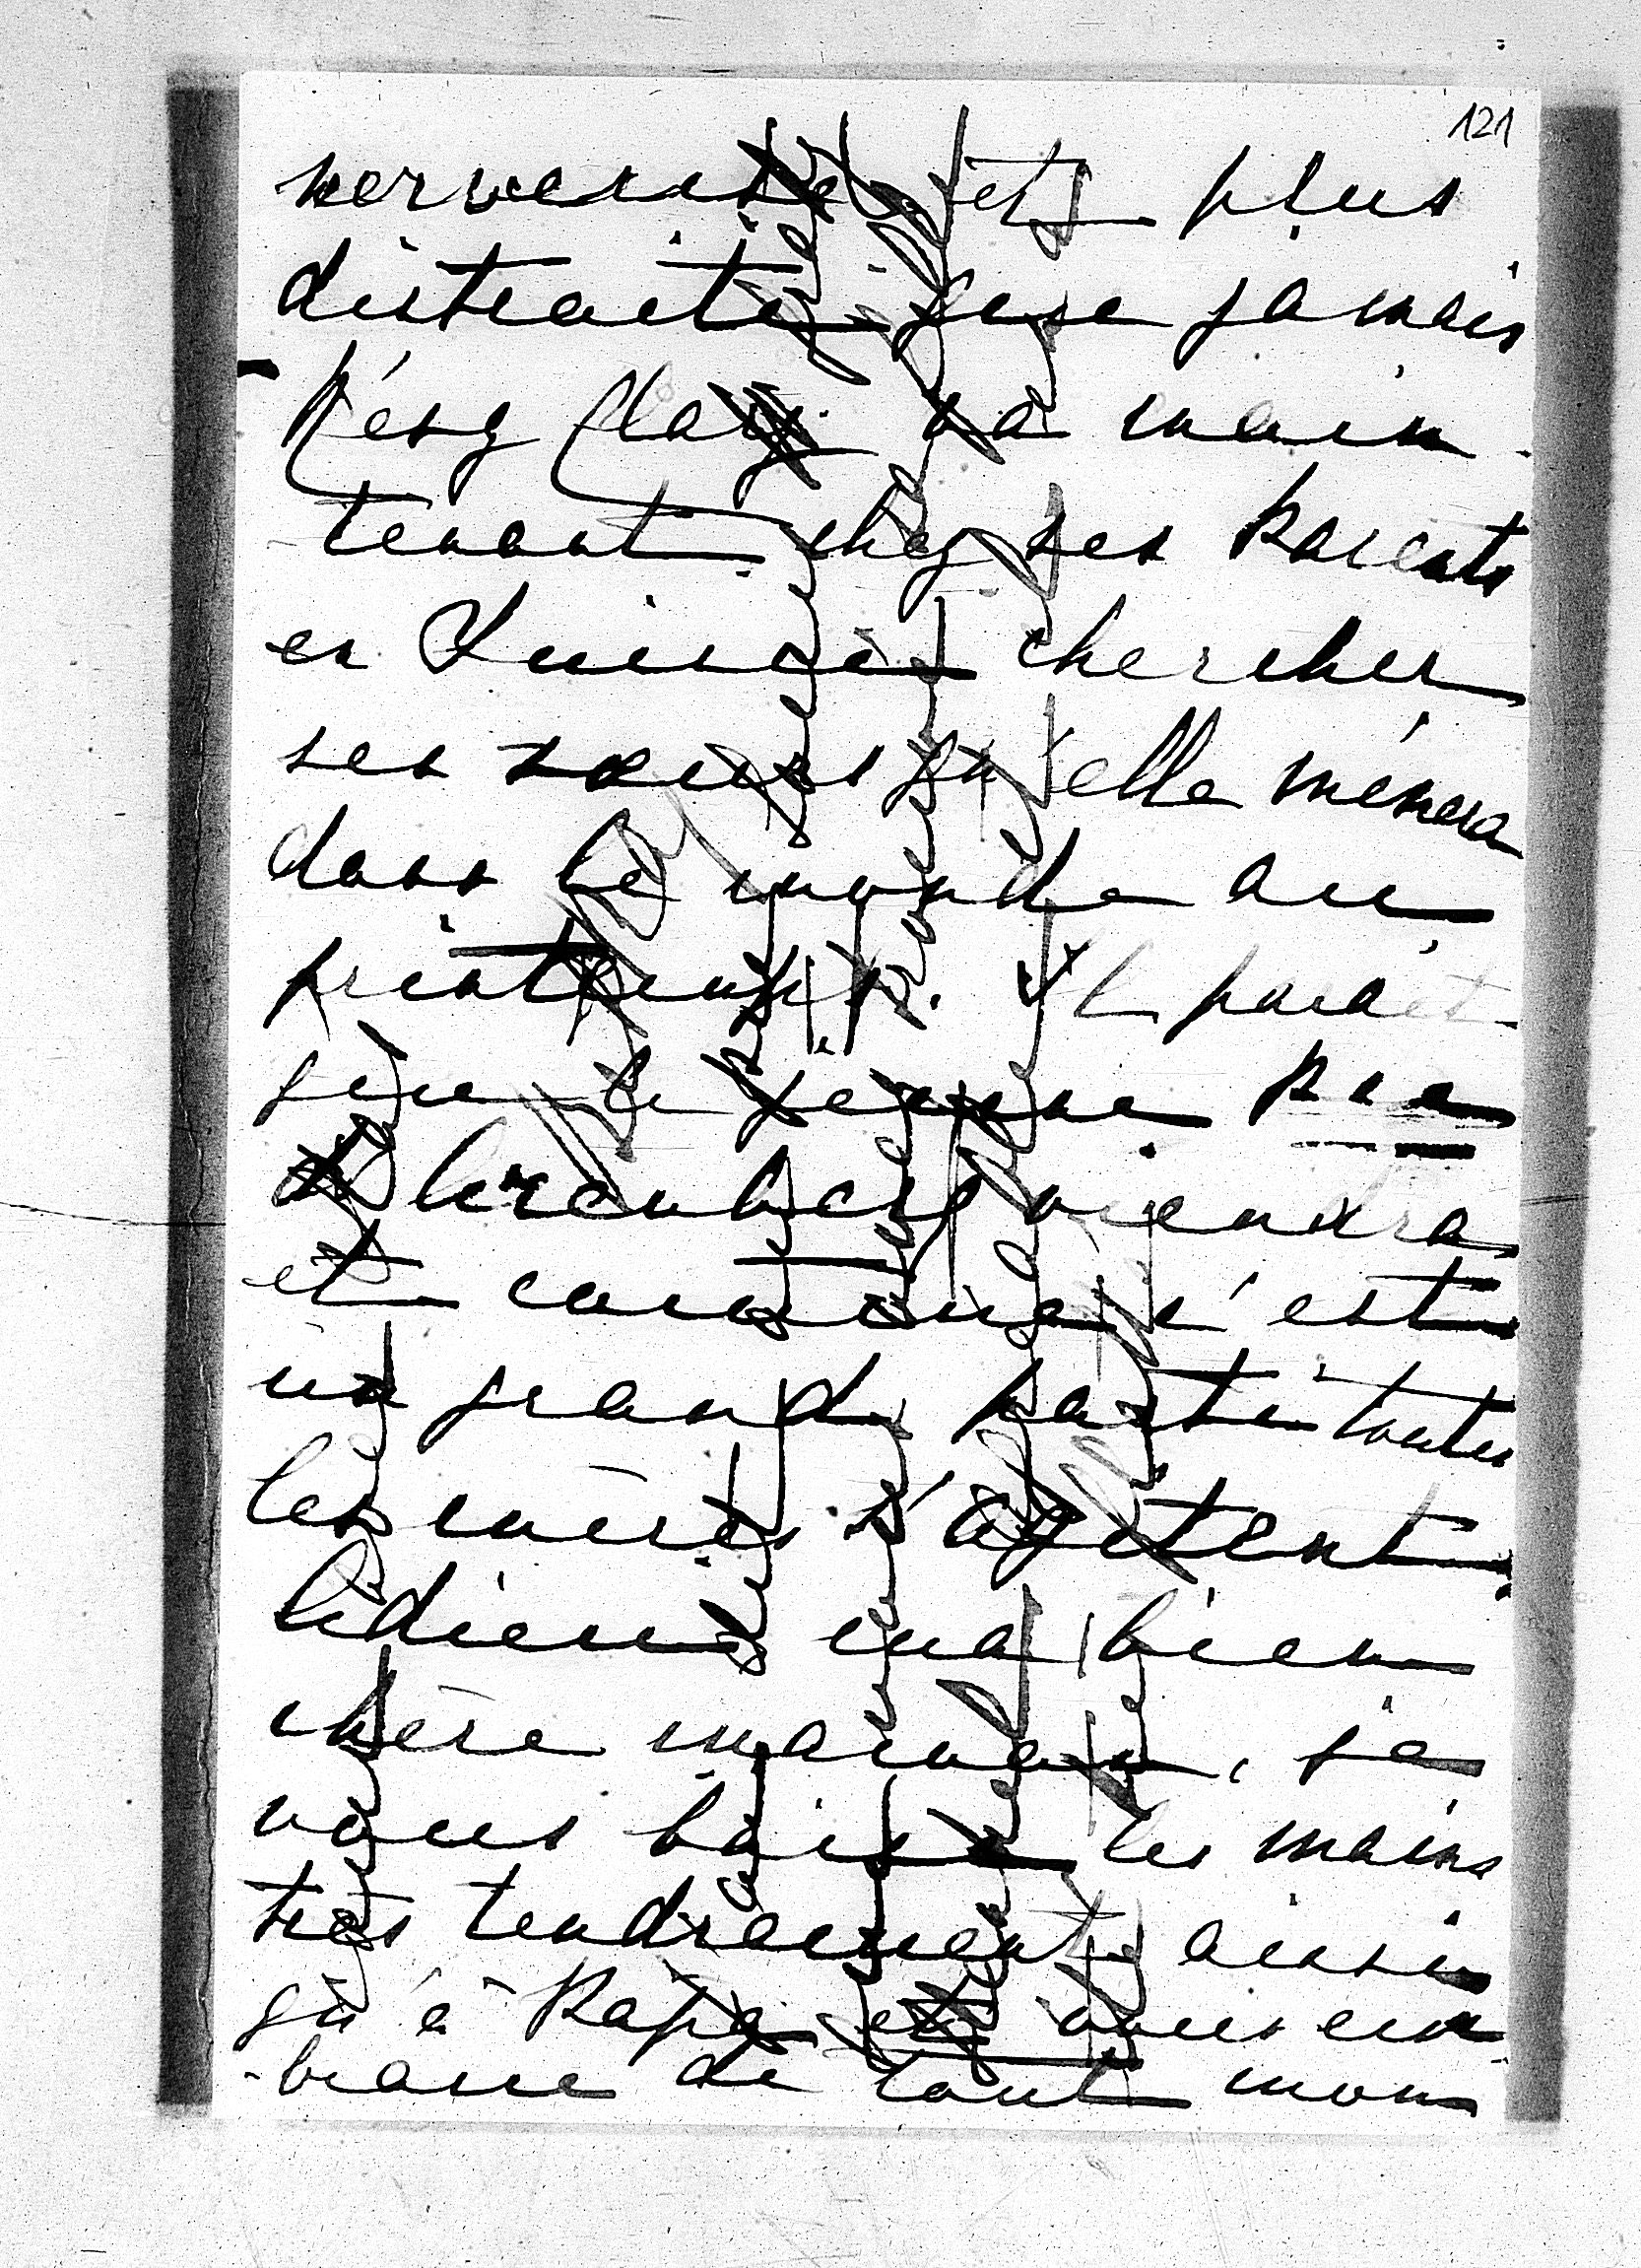 121
nerveuse et plus
distraite que jamais
va main-
tenant chez ses parents
en Suisse chercher
ses sœurs qu'elle mènera
dans le monde au
printemps. Il paraît
que le jeune
viendra
et comme c'est
un grand parti toutes
les mères s'agitent.
Adieu ma bien
chère maman, je
vous baise les mains
très tendrement ainsi
qu'à Papa et vous em-
-brasse de tout mon